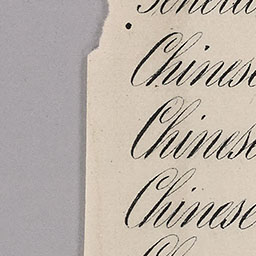 Chinese
Chinese
Chinese